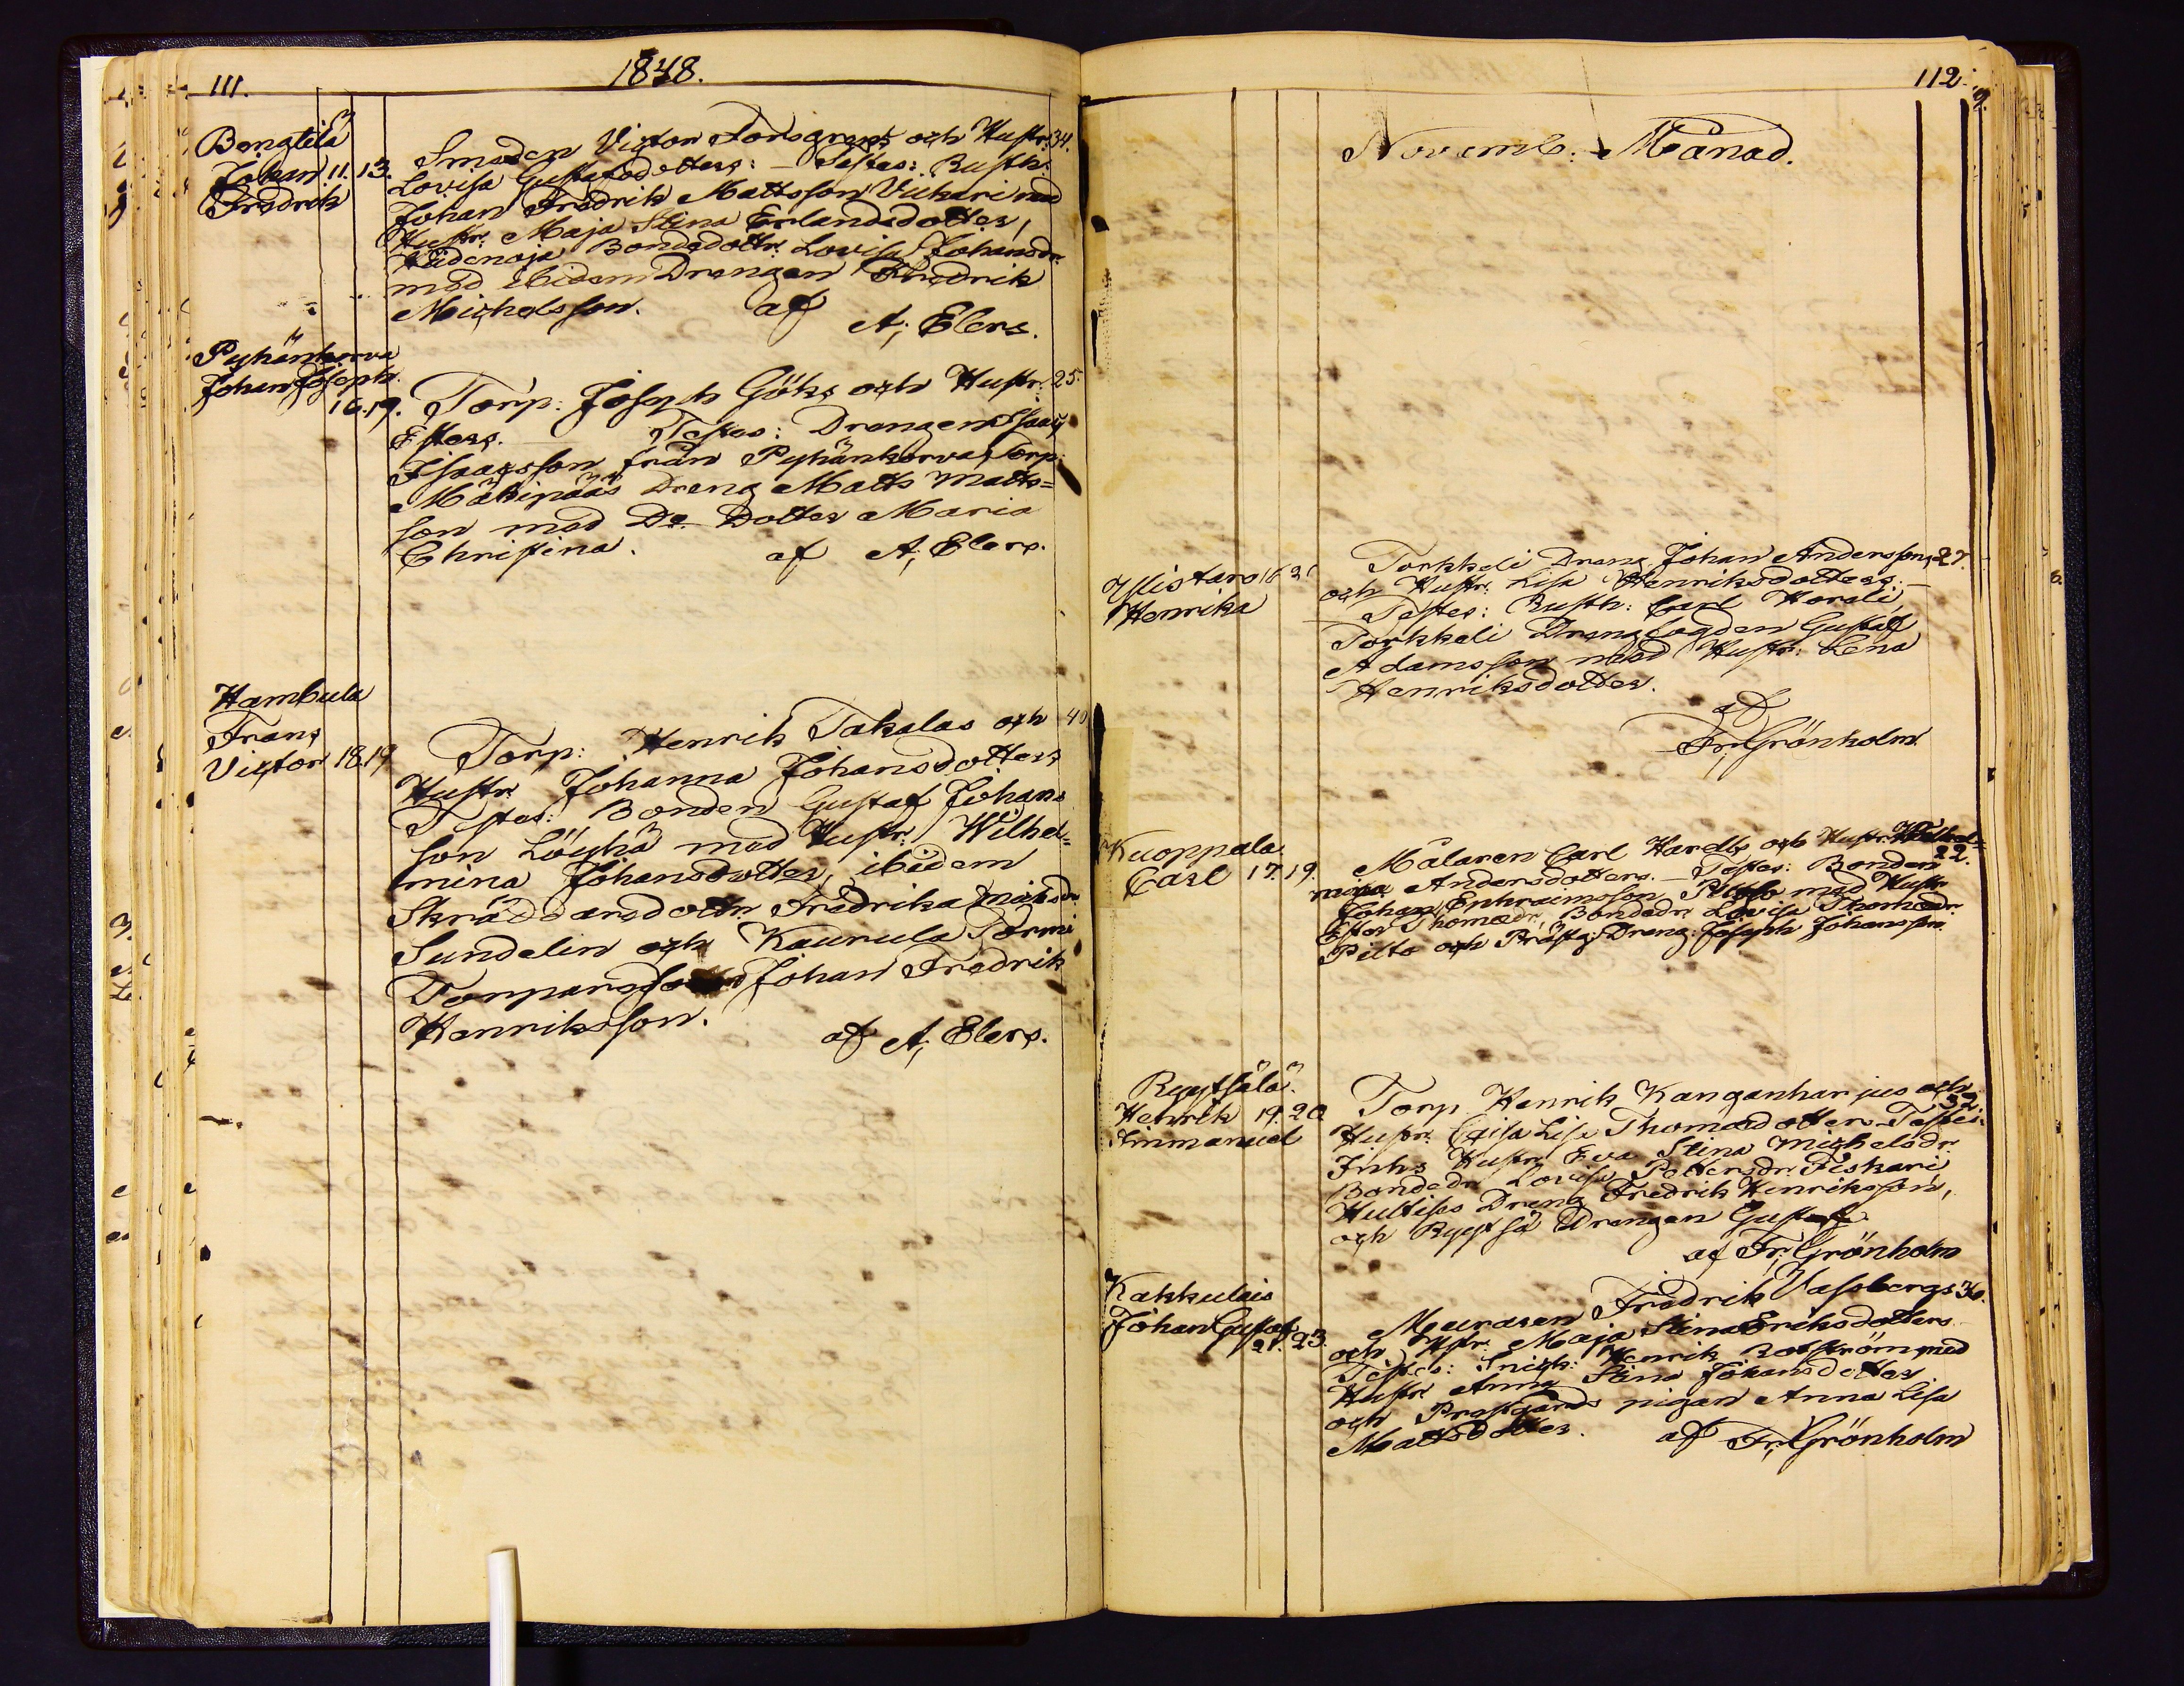 111.
1848.
Bengtilä
Johan 11. 13.
Fredrik
Smeden Victor Forsgrens och Hustr: 34.
Lovisa Gustafsdotters: — Testes: Rusth:
Johan Fredrik Mattsson Vickari med
Hustr: Maja Stina Erlandsdotter,
Häidenoja Bondedottr: Lovisa Johansdr:
med ibidem Drengen Fredrik
Michelsson. af
A; Elers.
Pyhänkorva
Johan Joseph.
16. 19.
Torp: Joseph Göks och Hustr: 25.
Esters. — Testes: Drengen Isaac
Isaacsson från Pyhänkorva, Torp:
Mäkipääs Dreng Matts Matts=
son med Do Dotter Maria
Christina. af A; Elers.
Hambula
Frans
Victor 18. 19
Torp: Henrik Takalas och 40
Hustr Johanna Johansdotters
Testes: Bonden Gustaf Johans
son Löyhä med Hustr: Wilhel=
mina Johansdotter, ibidem
Skräddarsdottr Fredrika Maiksdr
Sundelin och Kaurula Tormi
Torparsson Johan Fredrik
Henriksson.
af A; Elers.
112.
Novemb: Månad.
Ylistaro 16 21
Henrika
Torkkeli Dreng Johan Anderssons 27.
och Hustr: Lisa Henriksdotters: —
Testes: Rusth: Carl Hordli,
Torkkeli Drengfogden Gustaf
Adamsson med Hustr: Lena
Henriksdotter.
af
Fr; Grönholm
Kuoppala
Carl 17. 19.
Målaren Carl Hardts och Hustr: Wilhel=
22.
mina Andersdotters. — Testes: Bonden
Johan Ephraimsson Pilto med Hustr
Ester Thomædr: Bondedr: Lovisa Thomædr:
Pilto och Prästg: Dreng: Joseph Johansson.
Ryytsälä.
Henrik 19. 20
Emmanuel
Torp Henrik Kanganharjus och
32.
Hustr: Caisa Lisa Thomædotters Testes:
Inhs Hustr: Eva Stina Michelsdr:
Bondedr: Lovisa Pettersdr: Fiskari
Hultiss Dreng Fredrik Henriksson,
och Ryytsä Drengen Gustaf
af Fr; Grönholm
Kakkulais
Johan Gustaf
21. 23.
Muraren Fredrik Vassbergs 30.
och Hstr: Maja Stina Eriksdotters
Testes: Snick: Henrik Boström med
Hustr Anna Stina Johansdotter
och Prestgårds pigan Anna Lisa
Mattsdotter. af Fr; Grönholm